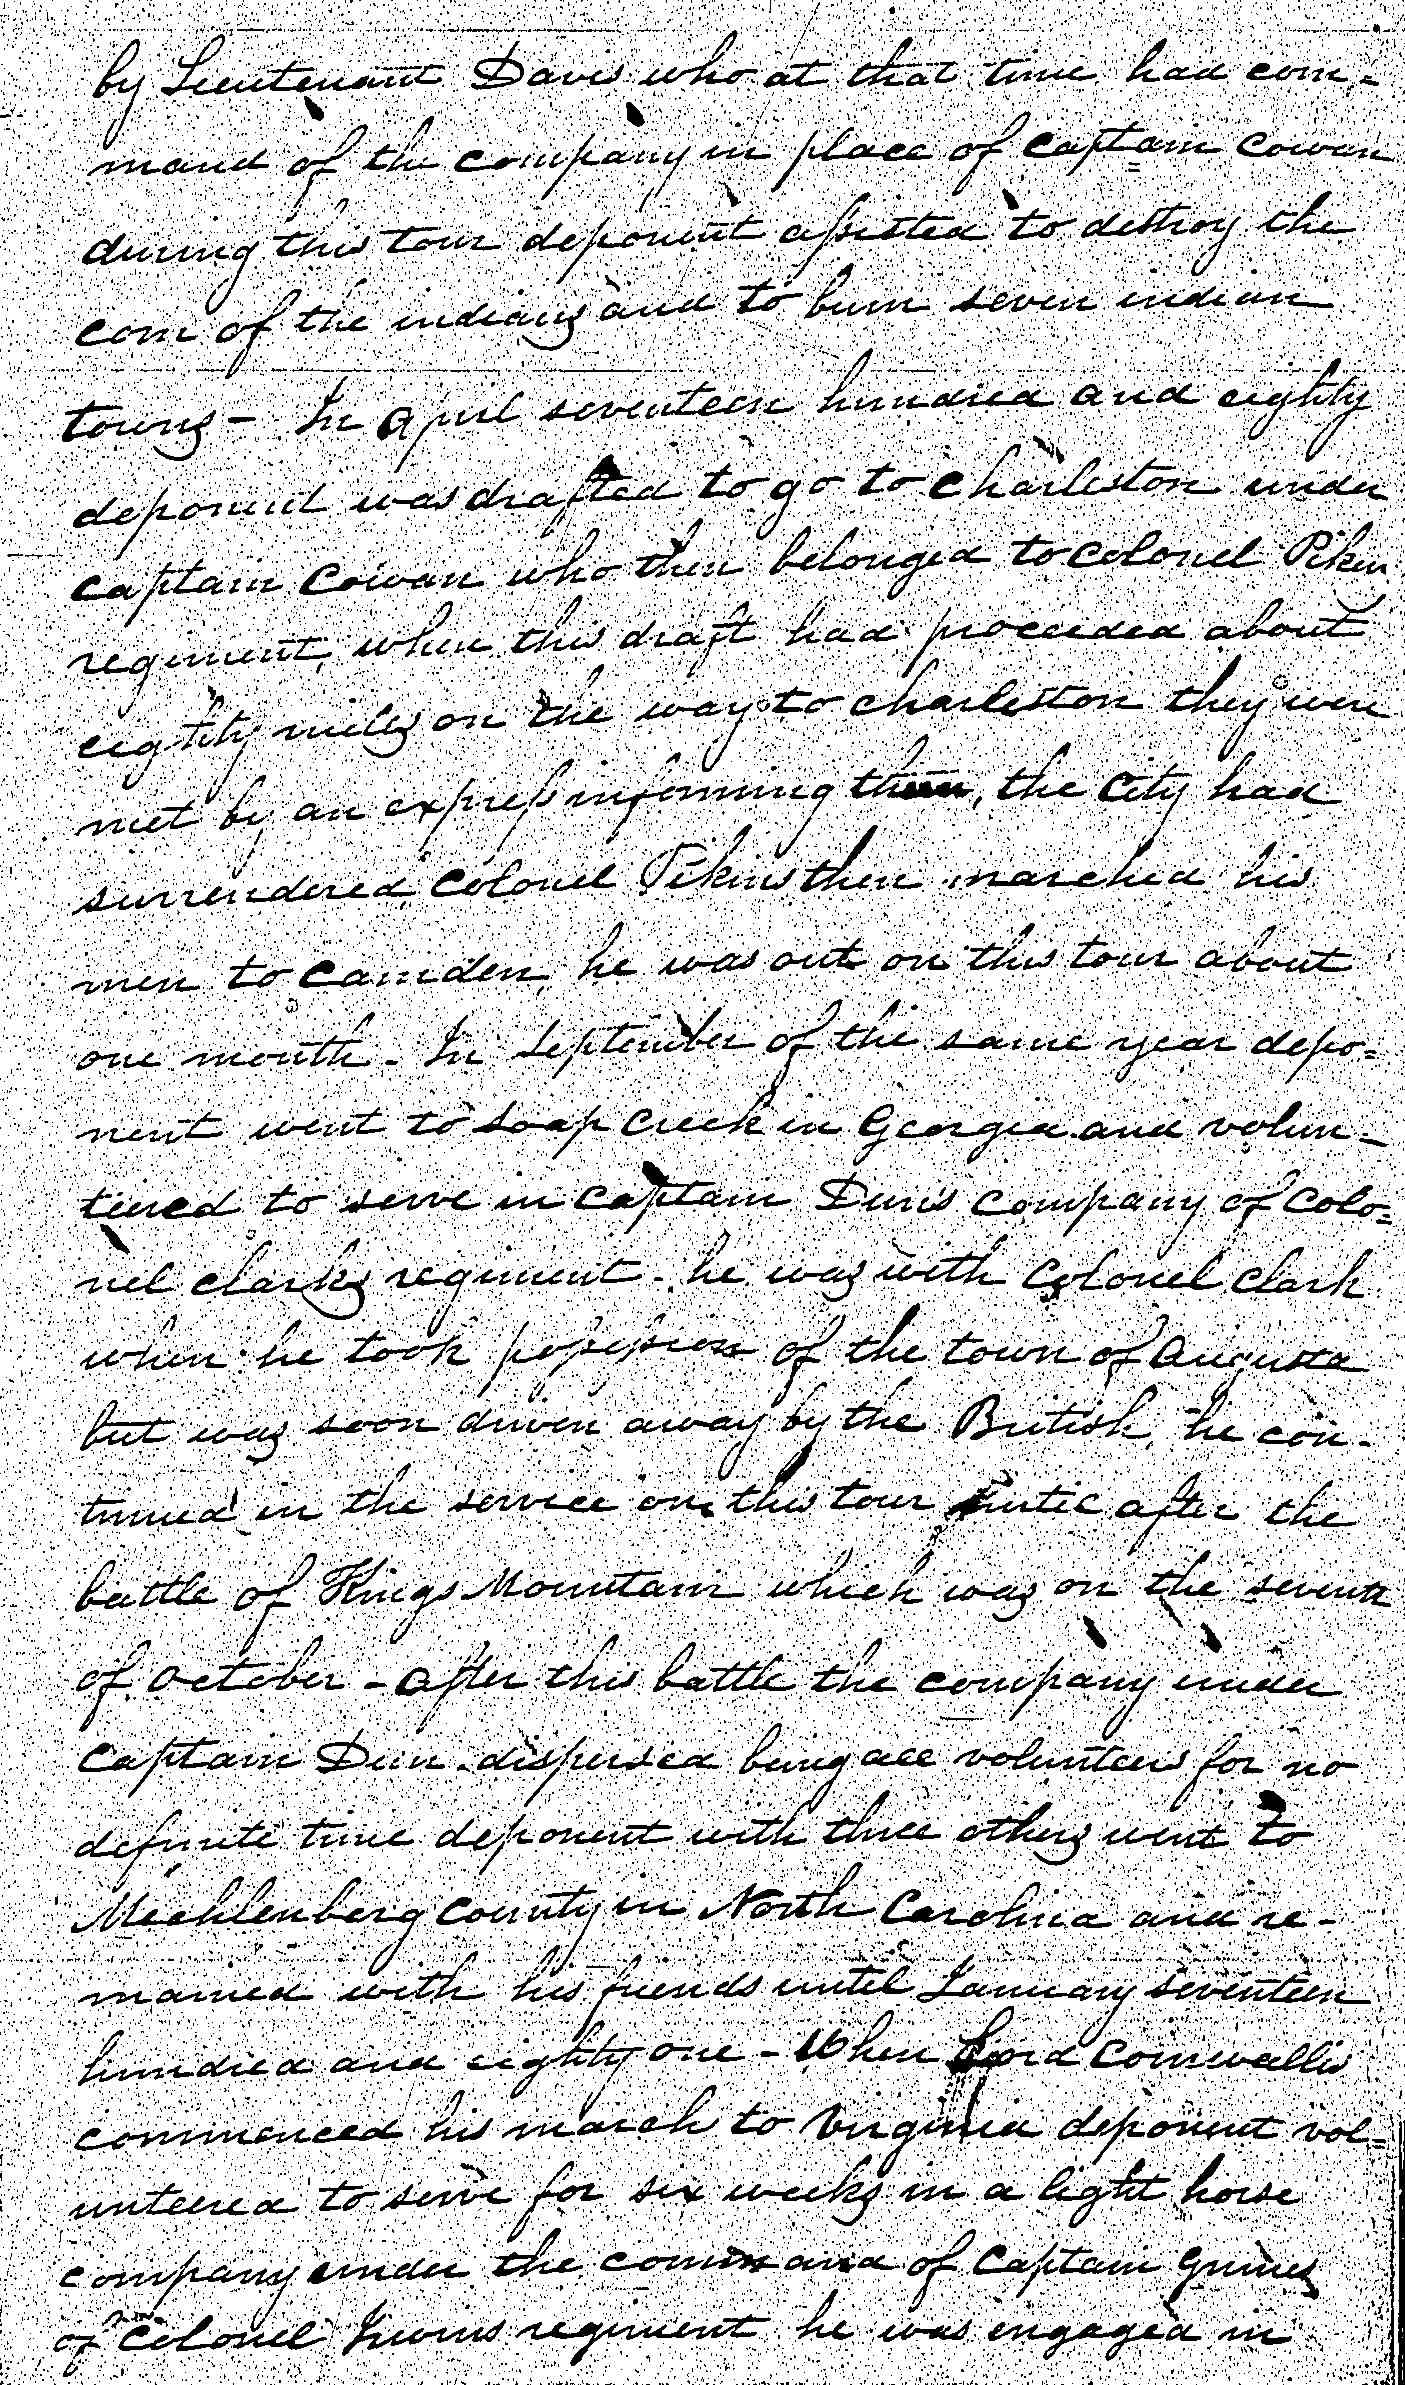 by Lieutenant Davis who at that time had com=
mand of the company in place of captain Cowan
during this tour deponent assisted to destroy the
corn of the indians and to burn seven indian
towns - In April seventeen hundred and eighty
deponent was drafted to go to Charleston under
captain Cowan who then belonged to Colonel Pikins
regiment, when this draft had proceeded about
eighty miles on the way to Charleston they were
met by an express informing them, the City had
surrendered Colonel Pikins then marched his
men to Camden, he was out on this tour about
one month - In September of the same year depo=
nent went to Soap Creek in Georgia and volun=
teered to serve in Captain Dun's company of Colo=
nel Clarks regiment - he was with Colonel Clark
when he took possession of the town of Augusta
but was soon driven away by the British, he con-
tinued in the service on this tour until after the
battle of Kings Mountain which was on the seventh
of October - After this battle the company under
Captain Dun dispersed being all volunteers for no
definite time deponent with three others went to
Mechlenberg County in North Carolina and re-
mained with his friends until January seventeen
hundred and eighty one - When Lord Cornwallis
commenced his march to Virginia deponent vol=
unteered to serve for six weeks in a light horse
company under the command of Captain Grimes
of Colonel Irwins regiment he was engaged in